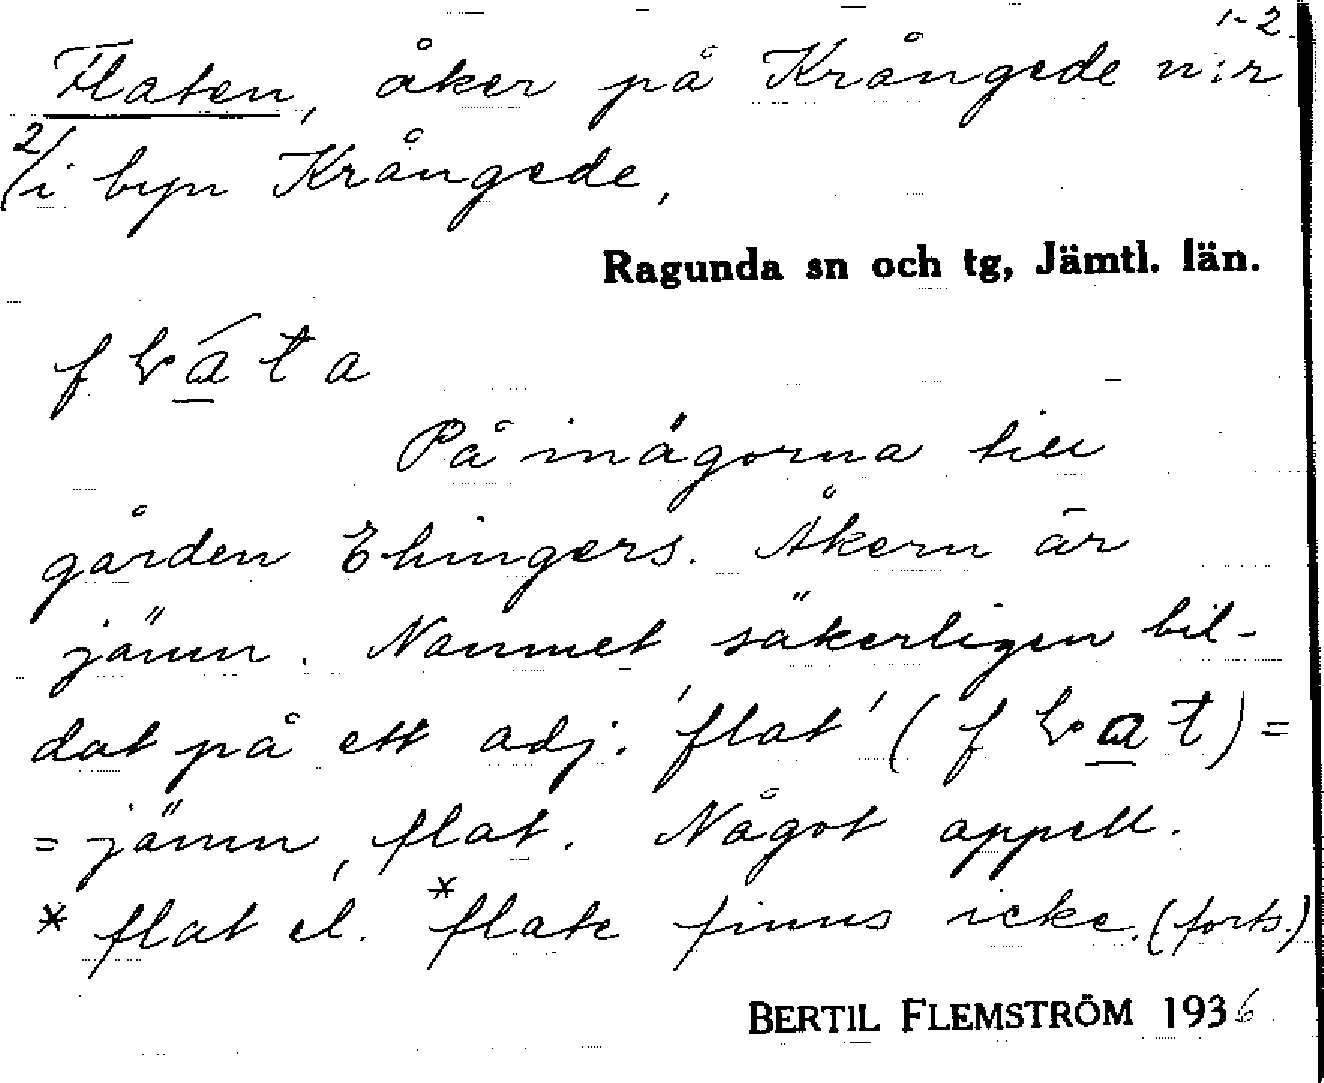 1-2
Flaten, åker på Krångede n:r
2/ i byn Krångede.
Ragunda sn och tg, Jämtl. län.
På inägorna till
gården Ehingers. Åkern är
jämn. Namnet säkerligen bil-
dat på ett adj. 'flat' ( ) =
= jämn, flat. Något appell.
* flat el. *flate finns icke. (forts.)
BERTIL FLEMSTRÖM 1936